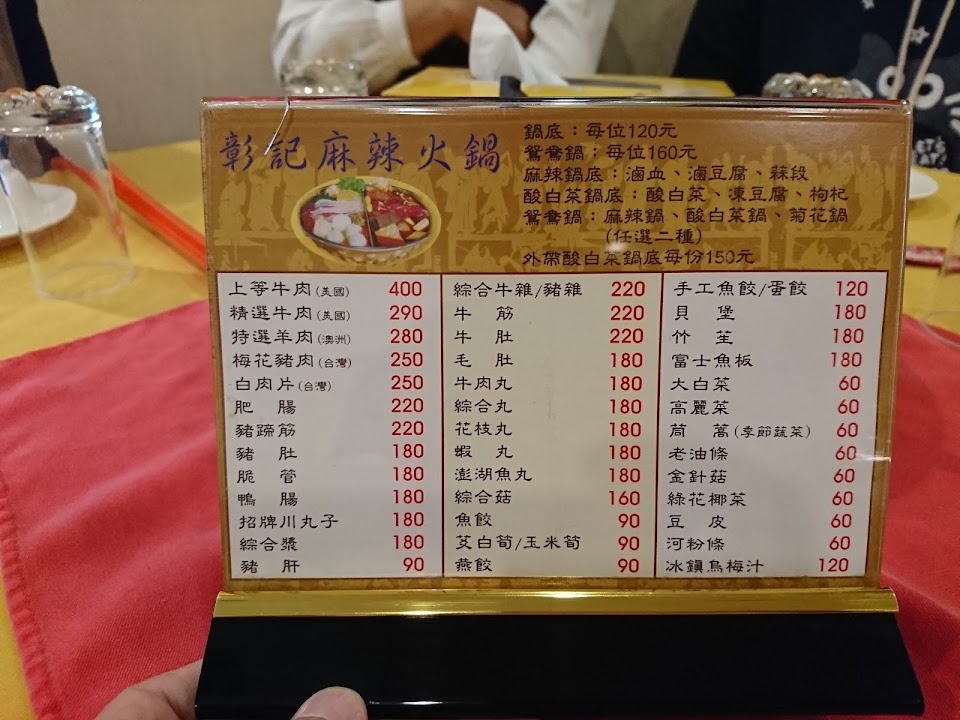 彰記麻辣火鍋
鍋底：每位120元
鴛鴦鍋：每位160元
麻辣鍋底：滷血、滷豆腐、蔴段
酸白菜鍋底：酸白菜、凍豆腐、枸杞
鴛鴦鍋：麻辣鍋、酸白菜鍋、菊花鍋
(任選二種)
外帶酸白菜鍋底每份150元
上等牛肉(美國) 400
精選牛肉(美國) 290
特選羊肉(澳洲) 280
梅花豬肉(台灣) 250
白肉片(台灣) 250
肥 腸 220
豬蹄筋 220
豬 肚 180
脆 管 180
鴨 腸 180
招牌川丸子 180
綜合漿 180
豬 肝 90
綜合牛雜/豬雜 220
牛 筋 220
牛 肚 220
毛 肚 180
牛肉丸 180
綜合丸 180
花枝丸 180
蝦 丸 180
澎湖魚丸 180
綜合菇 160
魚餃 90
茭白筍/玉米筍 90
燕餃 90
手工魚餃/蛋餃 120
貝 堡 180
竹 笙 180
富士魚板 180
大白菜 60
高麗菜 60
茼 蒿(季節蔬菜) 60
老油條 60
金針菇 60
綠花椰菜 60
豆 皮 60
河粉條 60
冰鎮烏梅汁 120